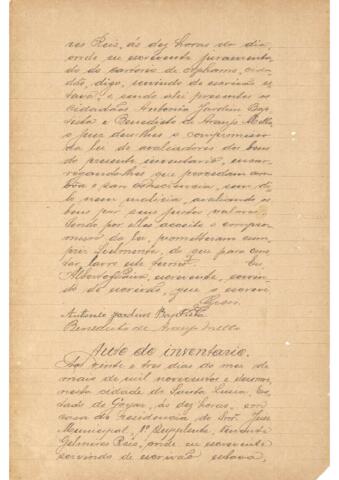 res Reis, ás dez horas do dia,
onde eu escrevente juramenta-
do do cartorio de orphams, cida-
dão, digo, servindo de escrivão es-
tava, e sendo ahi presentes os
cidadãos Antonio Jardim Bap-
tista e Benedicto de Araujo Mello,
o juiz deu-lhes o compromisso
da lei de avaliadores dos bens
do presente inventario, encar-
regando-lhes que procedam com
bôa e san consciencia, sem do-
lo nem malicia, avaliando os
bens por seus justos valores.
Tendo por elles acceito o compro-
misso da lei, prometteram cum-
prir fielmente, do que para cons-
tar lavro este termo. Eu
escrevente, servin-
do de escrivão, que o escrevi.
Antonio Jardim Baptista
Benedicto de Araujo Mello
Auto do inventario.
Aos vinte e tres dias do mez de
maio de mil novecentos e
nesta cidade de Santa Luzia, Es-
tado de Goyaz, ás dez horas, em
casa da residencia do Snr. Juiz
Municipal, 1º Supplente, tenente
Gelmires Reis, onde eu escrevente
servindo de escrivão estava,